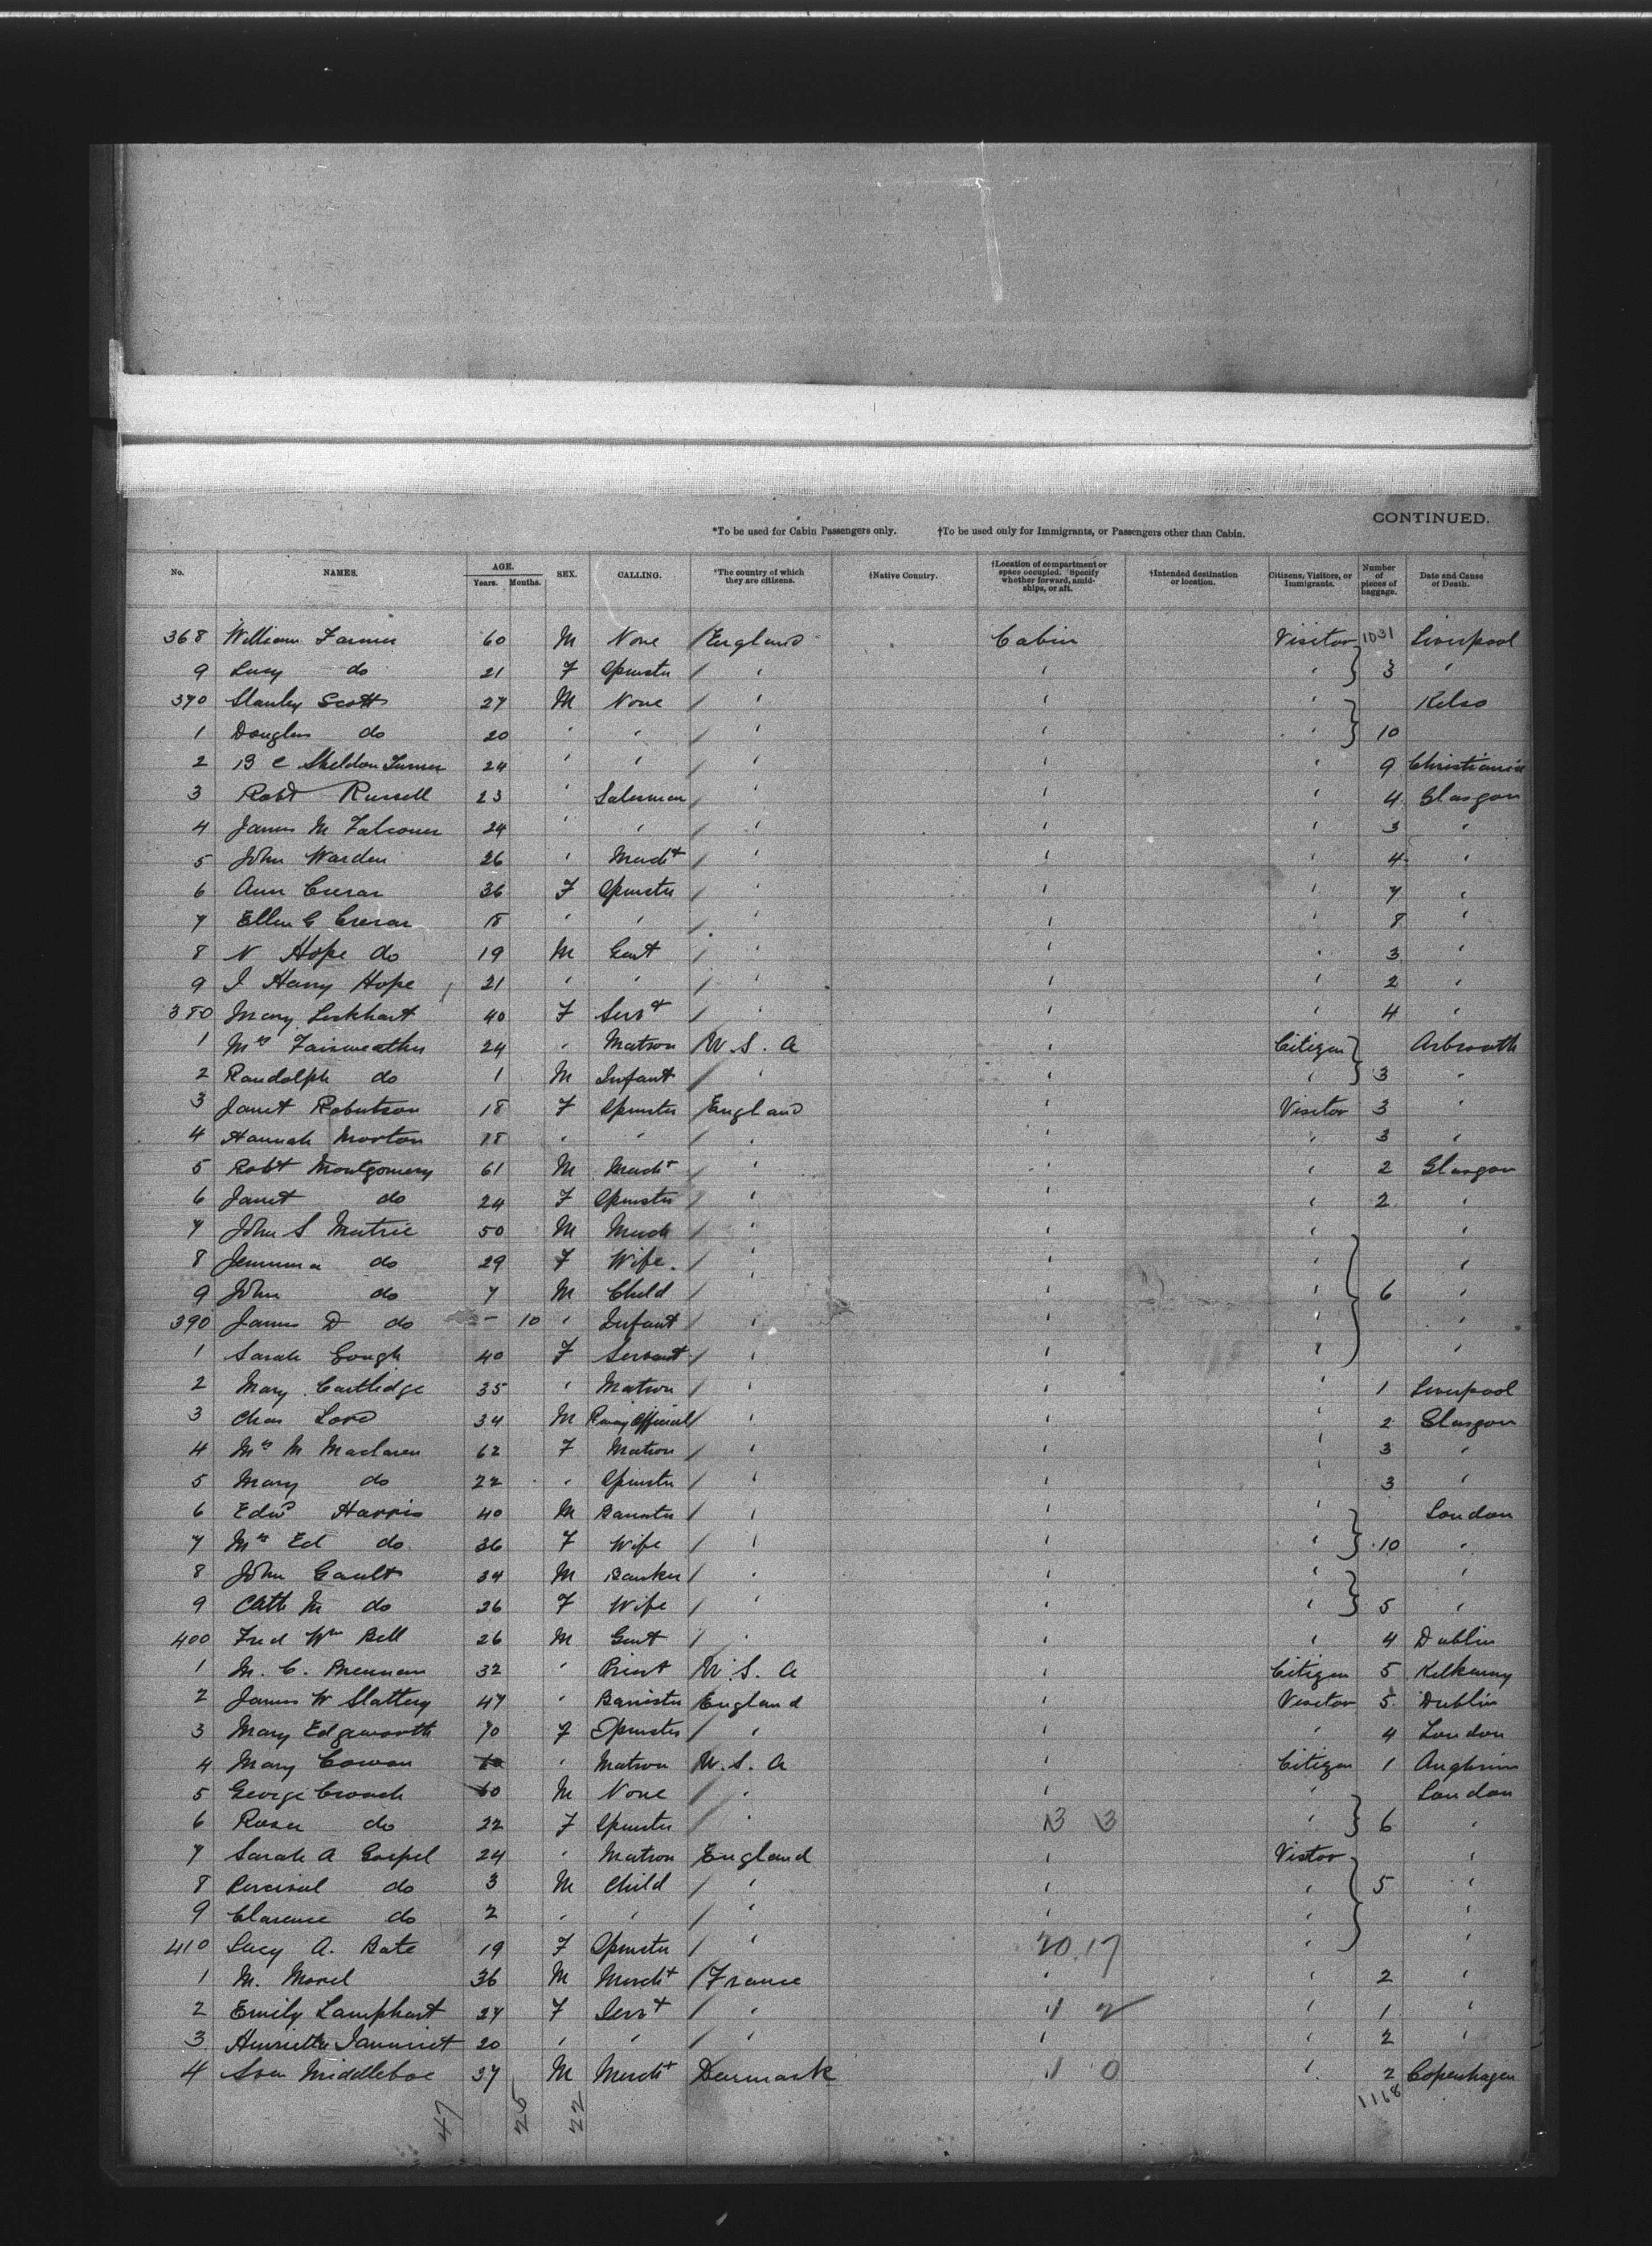 CONTINUED.
*To be used for Cabin Passengers only. †To be used only for Immigrants, or Passengers other than Cabin.
No. NAMES. AGE. Years. Months. SEX. CALLING. *The country of which they are citizens. †Native Country. †Location of compartment or space occupied. Specify whether forward, amid-ships, or aft. †Intended destination or location. Citizens, Visitors, or Immigrants. Number of pieces of baggage. Date and Cause of Death.
368 William Farmer 60 M None England Cabin Visitor 1031 Liverpool
9 Lucy do 21 F Spinster / ' ' ' 3 '
370 Stanley Scott 27 M None / ' ' ' Kelso
1 Douglas do 20 ' ' / ' ' ' 10
2 B C Sheldon Turner 24 ' ' / ' ' ' 9 Christiania
3 Robt Russell 23 ' Salesman / ' ' ' 4 Glasgow
4 James M Falconer 24 ' ' / ' ' ' 3 '
5 John Warden 26 ' Mercht / ' ' ' 4 '
6 Ann Crerar 36 F Spinster / ' ' ' 7 '
7 Ellen G Crerar 18 ' ' / ' ' ' 8 '
8 N Hope do 19 M Gent / ' ' ' 3 '
9 I Harry Hope 21 ' ' / ' ' ' 2 '
380 Mary Lockhart 40 F Servt / ' ' ' 4 '
1 Mrs Fairweather 24 ' Matron U.S.A ' Citizen Arbroath
2 Randolph do 1 M Infant / ' ' ' 3 '
3 Janet Robertson 18 F Spinster England ' Visitor 3 '
4 Hannah Morton 18 ' ' / ' ' ' 3 '
5 Robt Montgomery 61 M Mercht / ' ' ' 2 Glasgow
6 Janet do 24 F Spinster / ' ' ' 2 '
7 John S Mutrie 50 M Merch / ' ' ' '
8 Jemima do 29 F Wife / ' ' ' '
9 John do 7 M Child / ' ' ' 6 '
390 James D do - 10 ' Infant / ' ' ' '
1 Sarah Gough 40 F Servant / ' ' ' '
2 Mary Cartlidge 35 ' Matron / ' ' ' 1 Liverpool
3 Chas Lord 34 M Rway Official / ' ' ' 2 Glasgow
4 Mrs M Maclaren 62 F Matron / ' ' ' 3 '
5 Mary do 22 ' Spinster / ' ' ' 3 '
6 Edwd Harris 40 M Barrister / ' ' ' London
7 Mrs Ed do 36 F Wife / ' ' ' 10 '
8 John Gault 34 M Banker / ' ' ' '
9 Cath M do 26 F Wife / ' ' ' 5 '
400 Fred Wm Bell 26 M Gent / ' ' ' 4 Dublin
1 M. C. Brennan 32 ' Priest U.S.A ' Citizen 5 Kilkenny
2 James W Slattery 47 ' Barrister England ' Visitor 5 Dublin
3 Mary Edgeworth 70 F Spinster / ' ' ' 4 London
4 Mary Cowan ' Matron U.S.A ' Citizen 1 Aughrim
5 George Crouch 60 M None / ' ' ' London
6 Rosa do 22 F Spinster / ' 13 3 ' 6 '
7 Sarah A Gospel 24 ' Matron England ' Vistor '
8 Percival do 3 M Child / ' ' ' 5 '
9 Clarence do 2 ' ' / ' ' ' '
410 Lucy A. Bate 19 F Spinster / ' 30 17 ' '
1 M. Morel 36 M Mercht France ' ' 2 '
2 Emily Lamphart 27 F Servt / ' 11 2 ' 1 '
3 Henrietta 20 ' ' / ' ' ' 2 '
4 Middleboe 37 M Mercht Denmark 11 0 ' 2 Copenhagen
47 25 22 1168